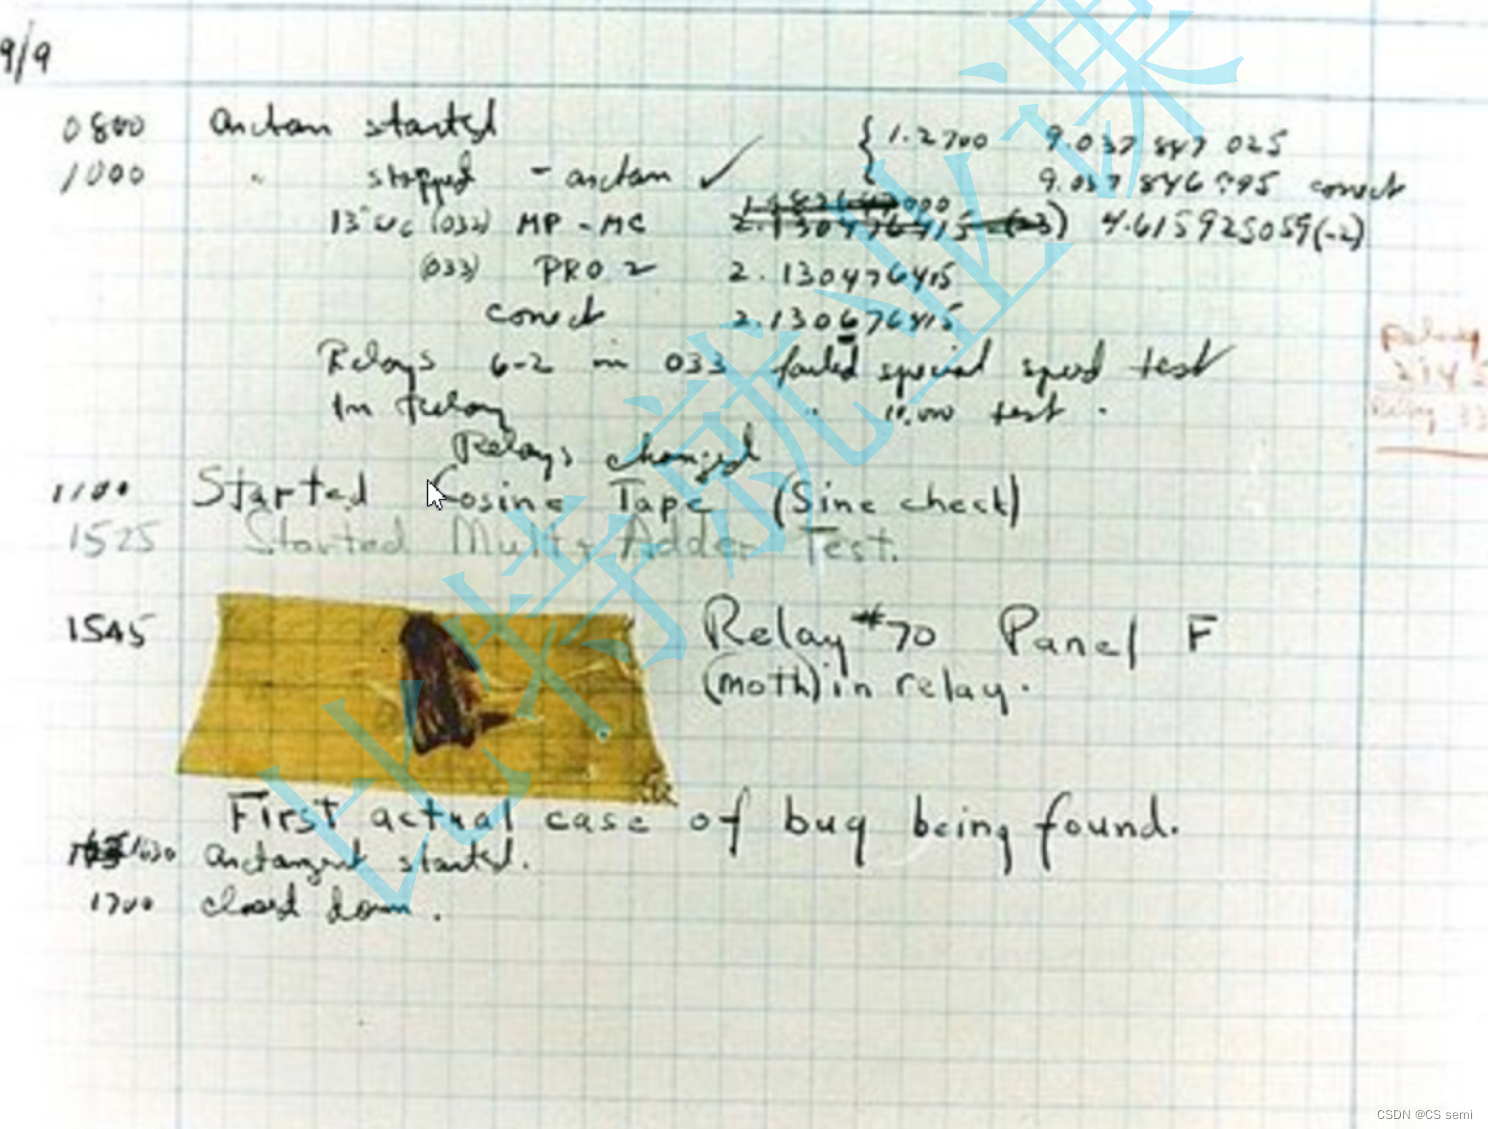 9/9
0800 Antan started
1000 " stopped - antan ✓ { 1.2700 9.037 847 025
9.037 846 995 correct
13"uc (032) MP - MC 2.130476415 (-3) 4.615925059(-2)
(033) PRO 2 2.130476415
correct 2.130676415
Relays 6-2 in 033 failed special speed test
In Relay " 10.000 test.
Relays changed
1100 Started Cosine Tape (Sine check)
1525 Started Mult+Adder Test.
1545 Relay #70 Panel F
(moth) in relay.
First actual case of bug being found.
1630 antangent started.
1700 closed down.
Relay
2145
Relay 33
比特就业课
CSDN @CS semi